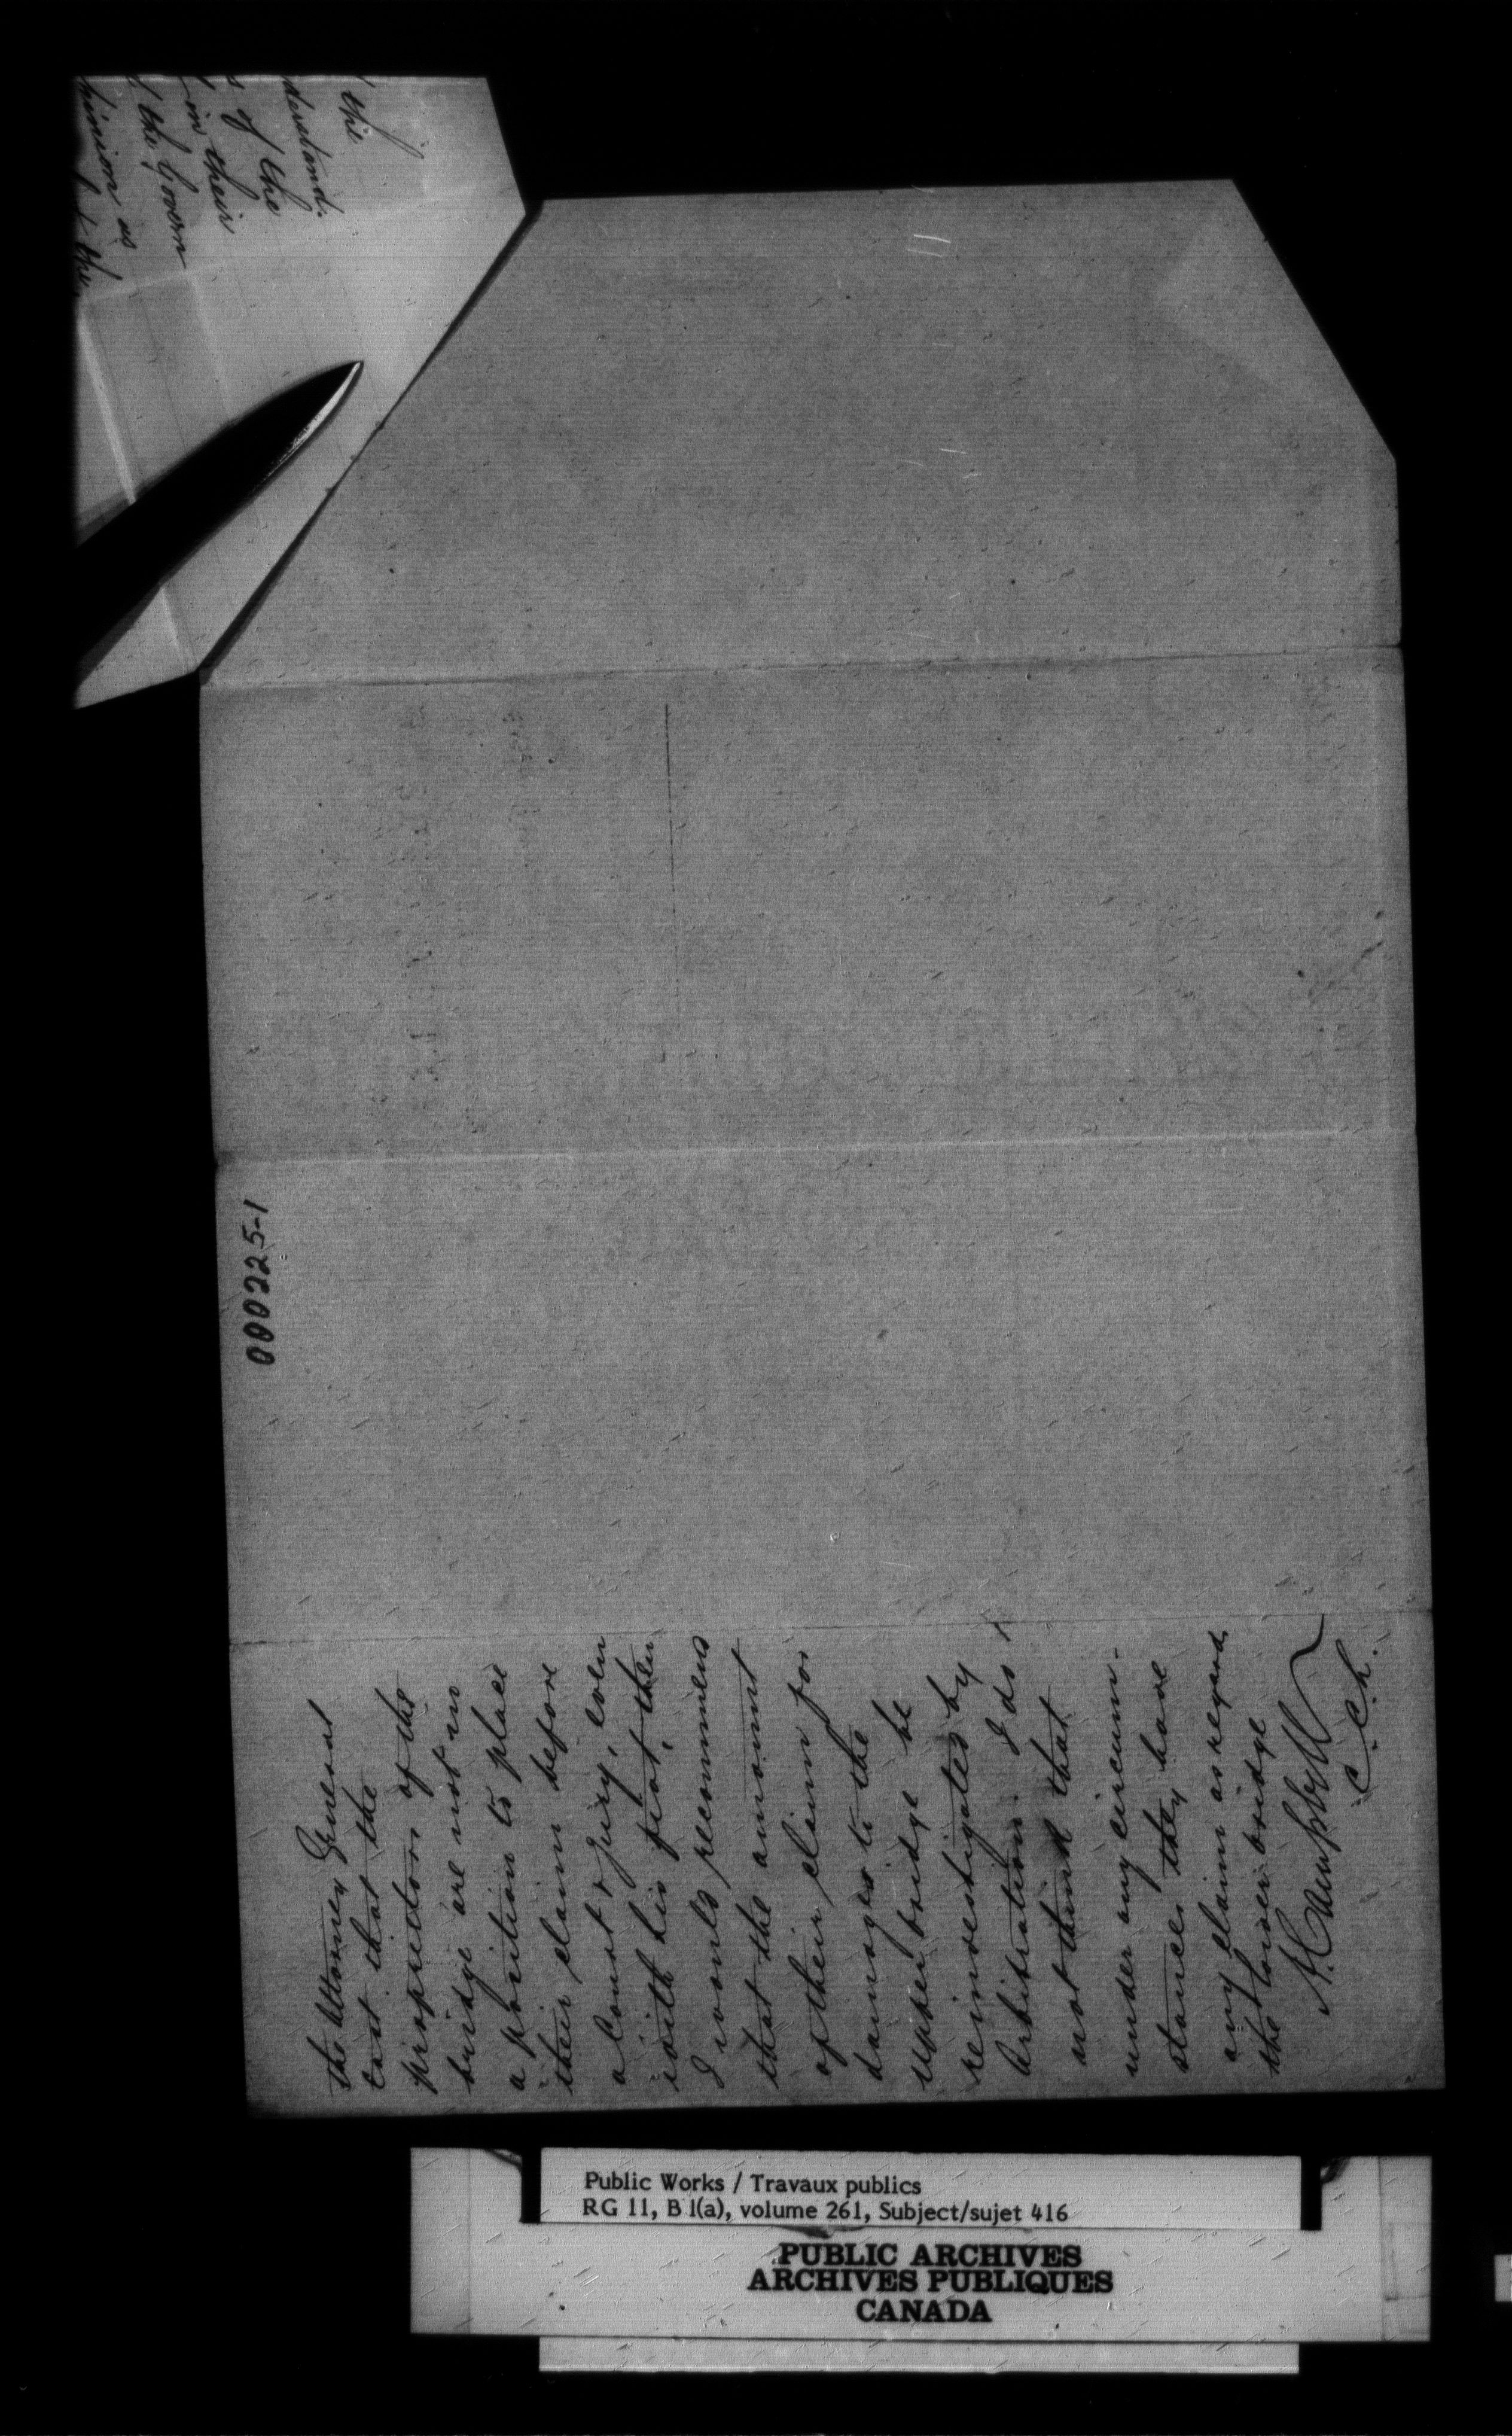 the
derstand.
s of the
in their
the Govern
pinion as
the
000225-1
the Attorney General
East that the
proprietors of the
bridge are not in
a position to place
their claim before
a Court & Jury, even
with his fiat, then
I would recommend
that the amount
of their claim for
damages to the
upper bridge be
reinvestigated by
Arbitration. I do
not think that
under any circum-
stances they have
any claim as regards
the lower bridge
A. Campbell
C.C.L.
Public Works / Travaux publics
RG 11, B 1(a), volume 261, Subject/sujet 416
PUBLIC ARCHIVES
ARCHIVES PUBLIQUES
CANADA